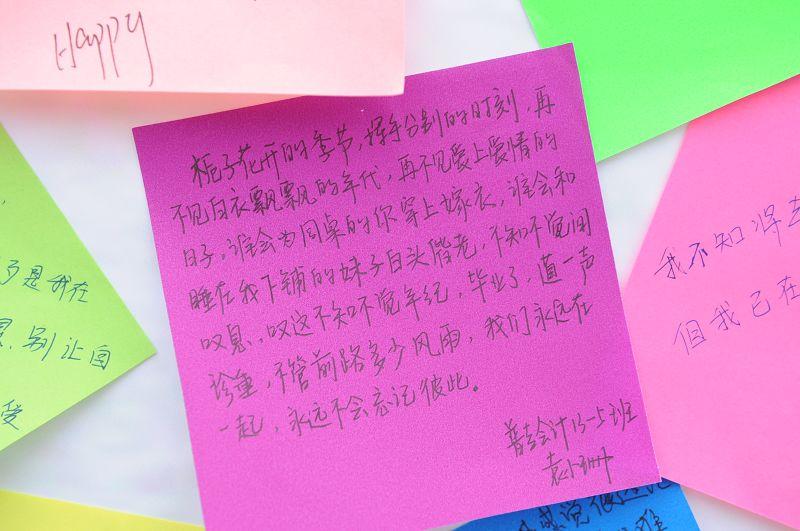 Happy
栀子花开的季节,挥手分别的时刻,再
不见白衣飘飘的年代,再不见爱上爱情的
日子,谁会为同桌的你穿上嫁衣,谁会和
睡在我下铺的妹子白头偕老,不知不觉间
叹息,叹这不知不觉年纪,毕业了,道一声
珍重,不管前路多少风雨,我们永远在
一起,永远不会忘记彼此。
会计13-5班
是我在
别让自
受
我不知将
但我已在